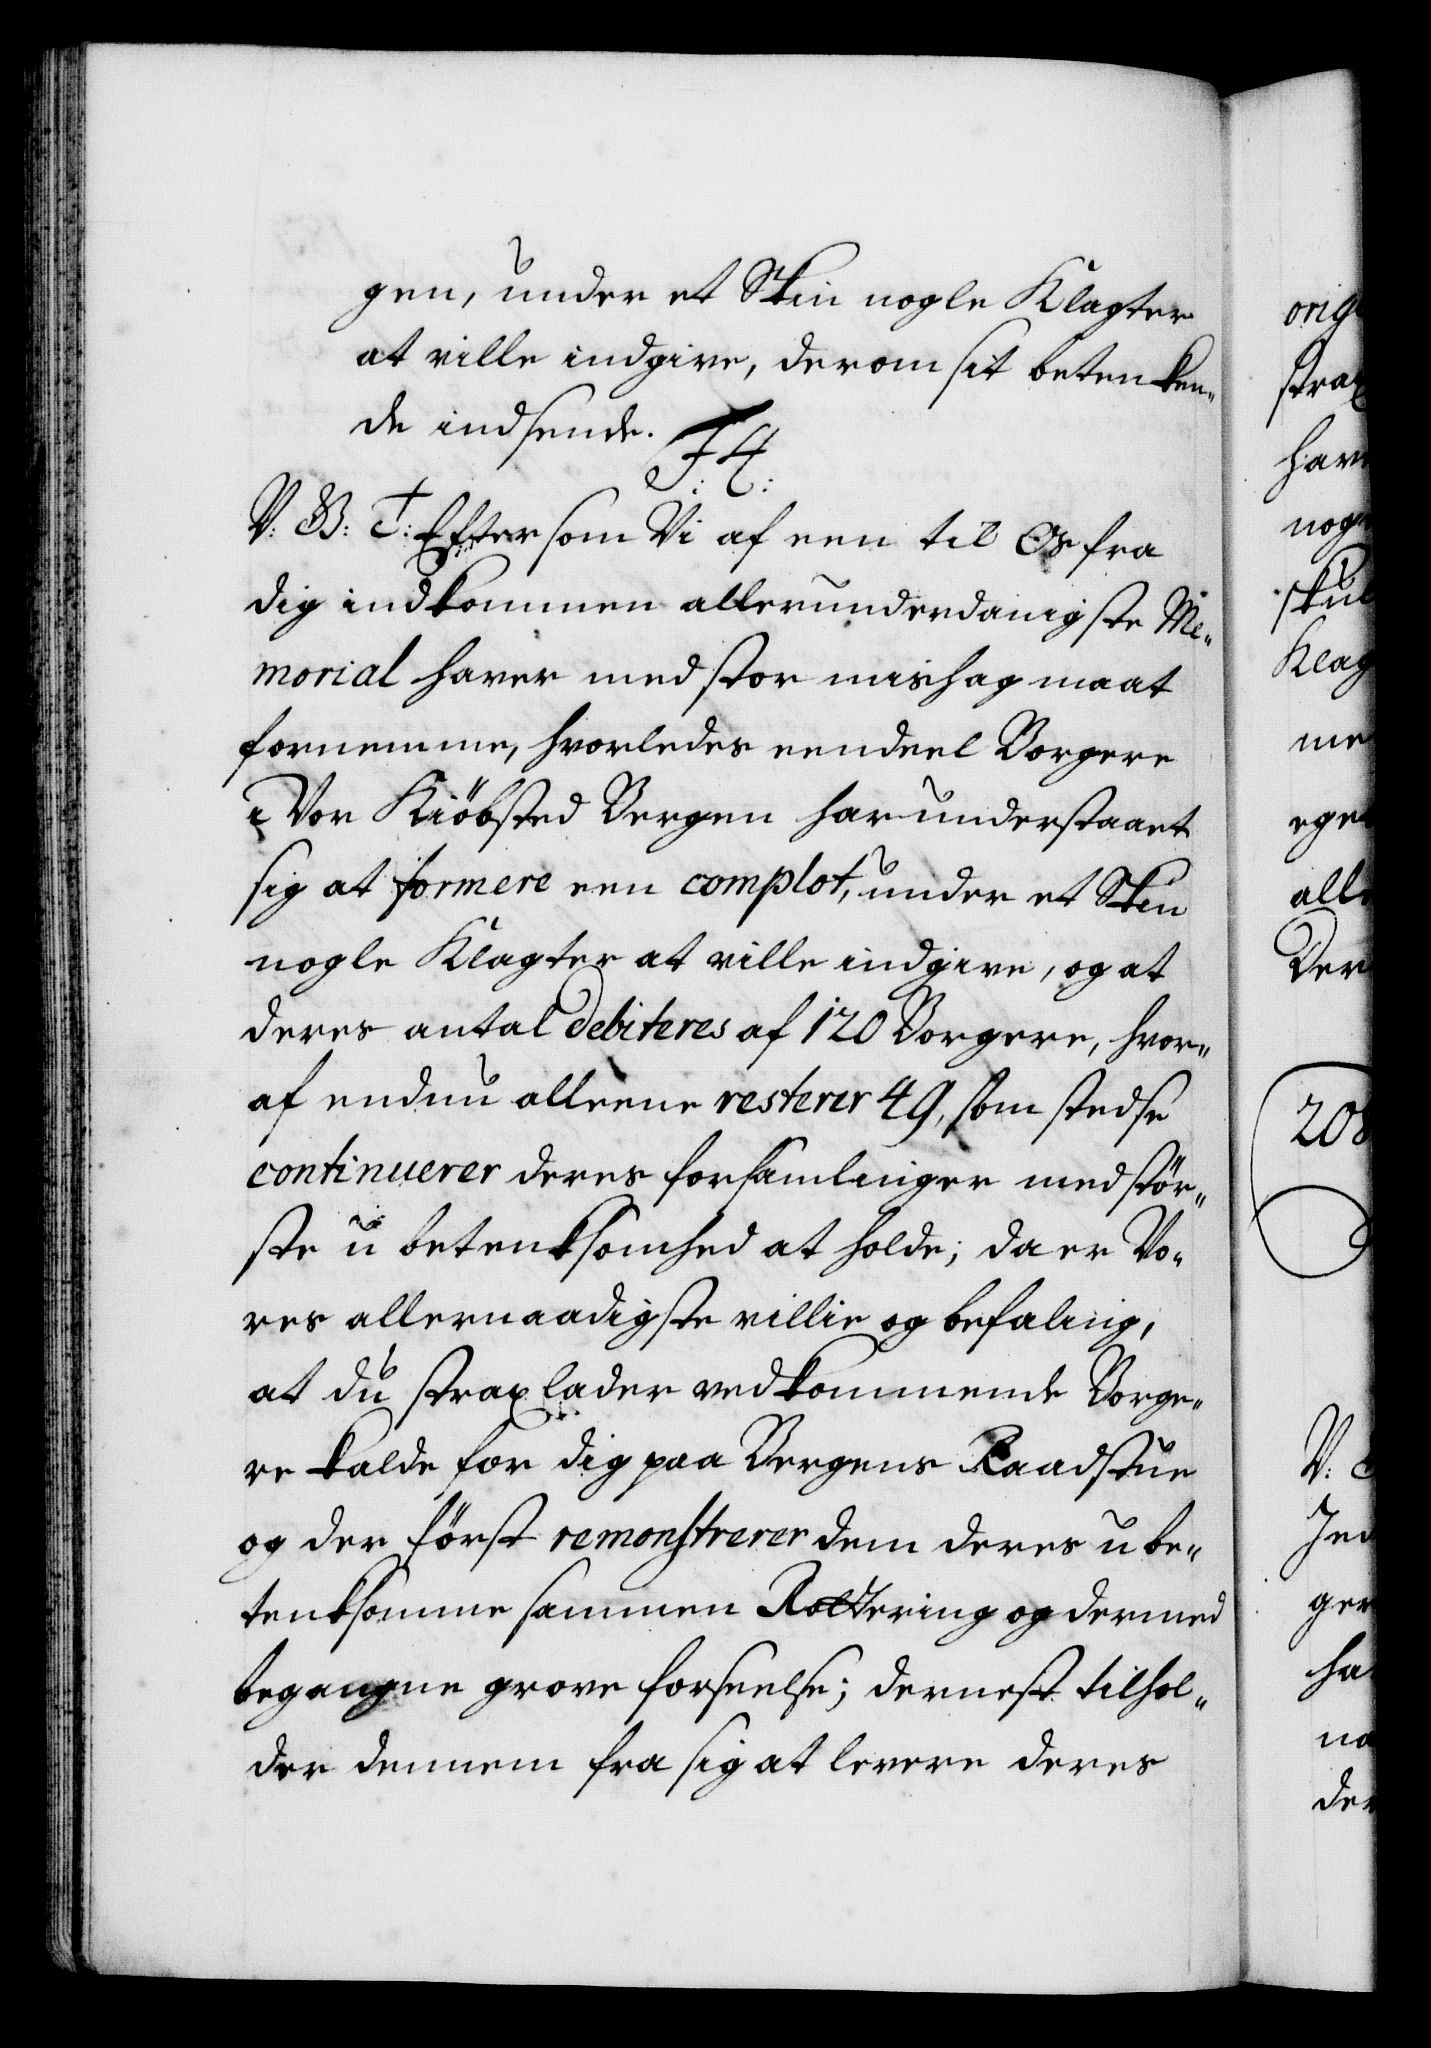 gen, under et Skin nogle Klagter
at ville indgive, derom sit betenken„
de indsende. F4.
V: G: T: Eftersom Vi af een til Os fra
dig indkommen allerunderdanigste Me„
morial haver med stor mishag maat
fornemme, hvorledes eendeel Borgere
i Vor Kiöbsted Bergen har understaaet
sig at formere een complot, under et Skin
nogle Klagter at ville indgive, og at
deres antal debiteres af 120 Borgere, hvor„
af endnu alleene resterer 49, som stedse
continuerer deres forsamlinger med stör„
ste ubetenksomhed at holde; da er Vo„
res allernaadigste villie og befaling,
at du strax lader vedkommende Borge„
re kalde for dig paa Bergens Raadstue
og der först remonstrerer dem deres ube„
tenksomme sammen Rottering og dermed
begangne grove forseelse; dernest tilhol„
der dennem fra sig at levere deres
orig
strax
hav
nog
skul
Klag
me
ege
alle
Der
208
V:
Jed
ger
ha
no
der